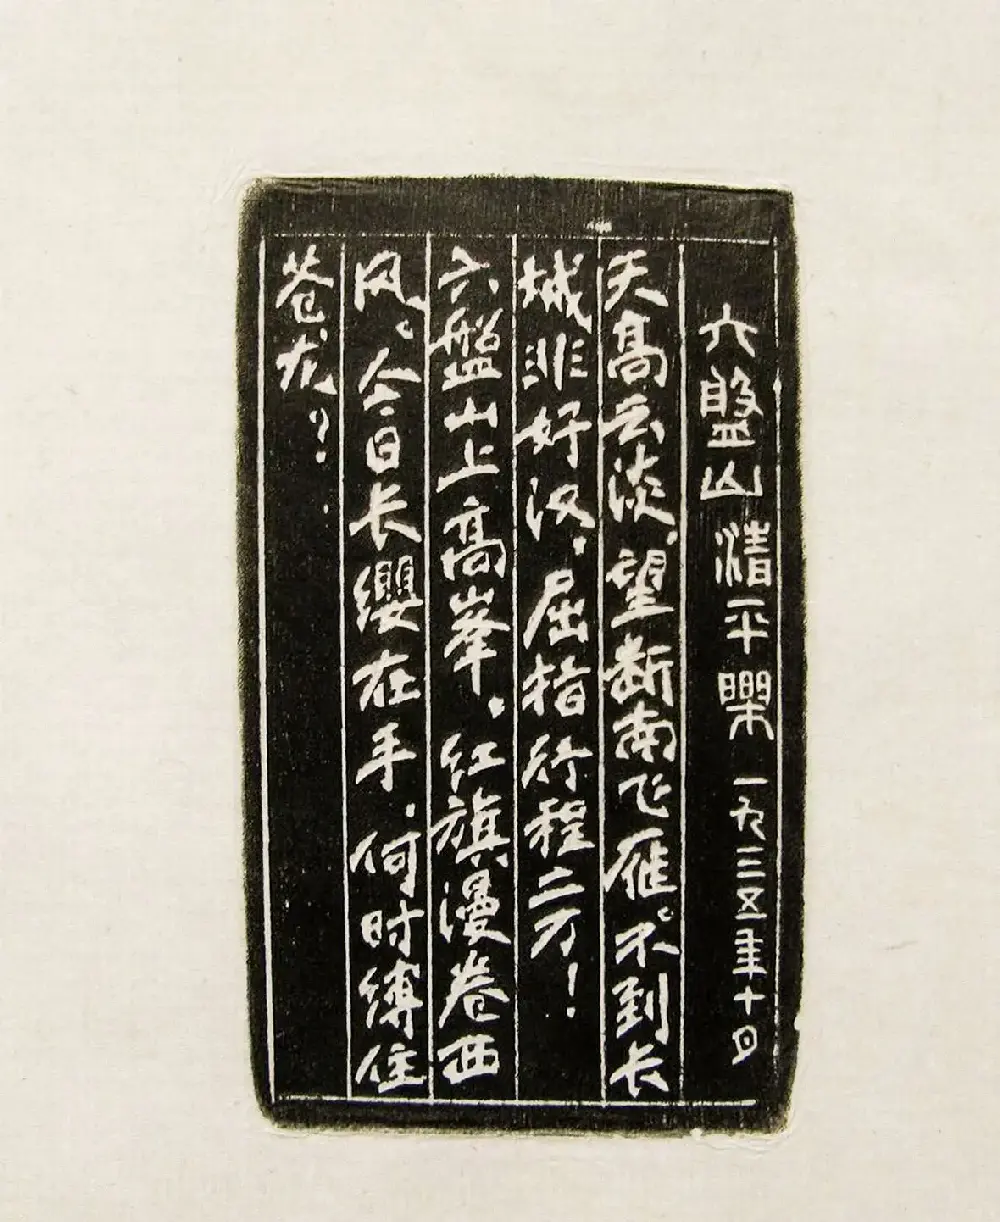 六盤山 清平樂 一九三五年十月
天高云淡，望断南飞雁。不到长
城非好汉，屈指行程二万！
六盤山上高峯，红旗漫卷西
风。今日长缨在手，何时缚住
苍龙？